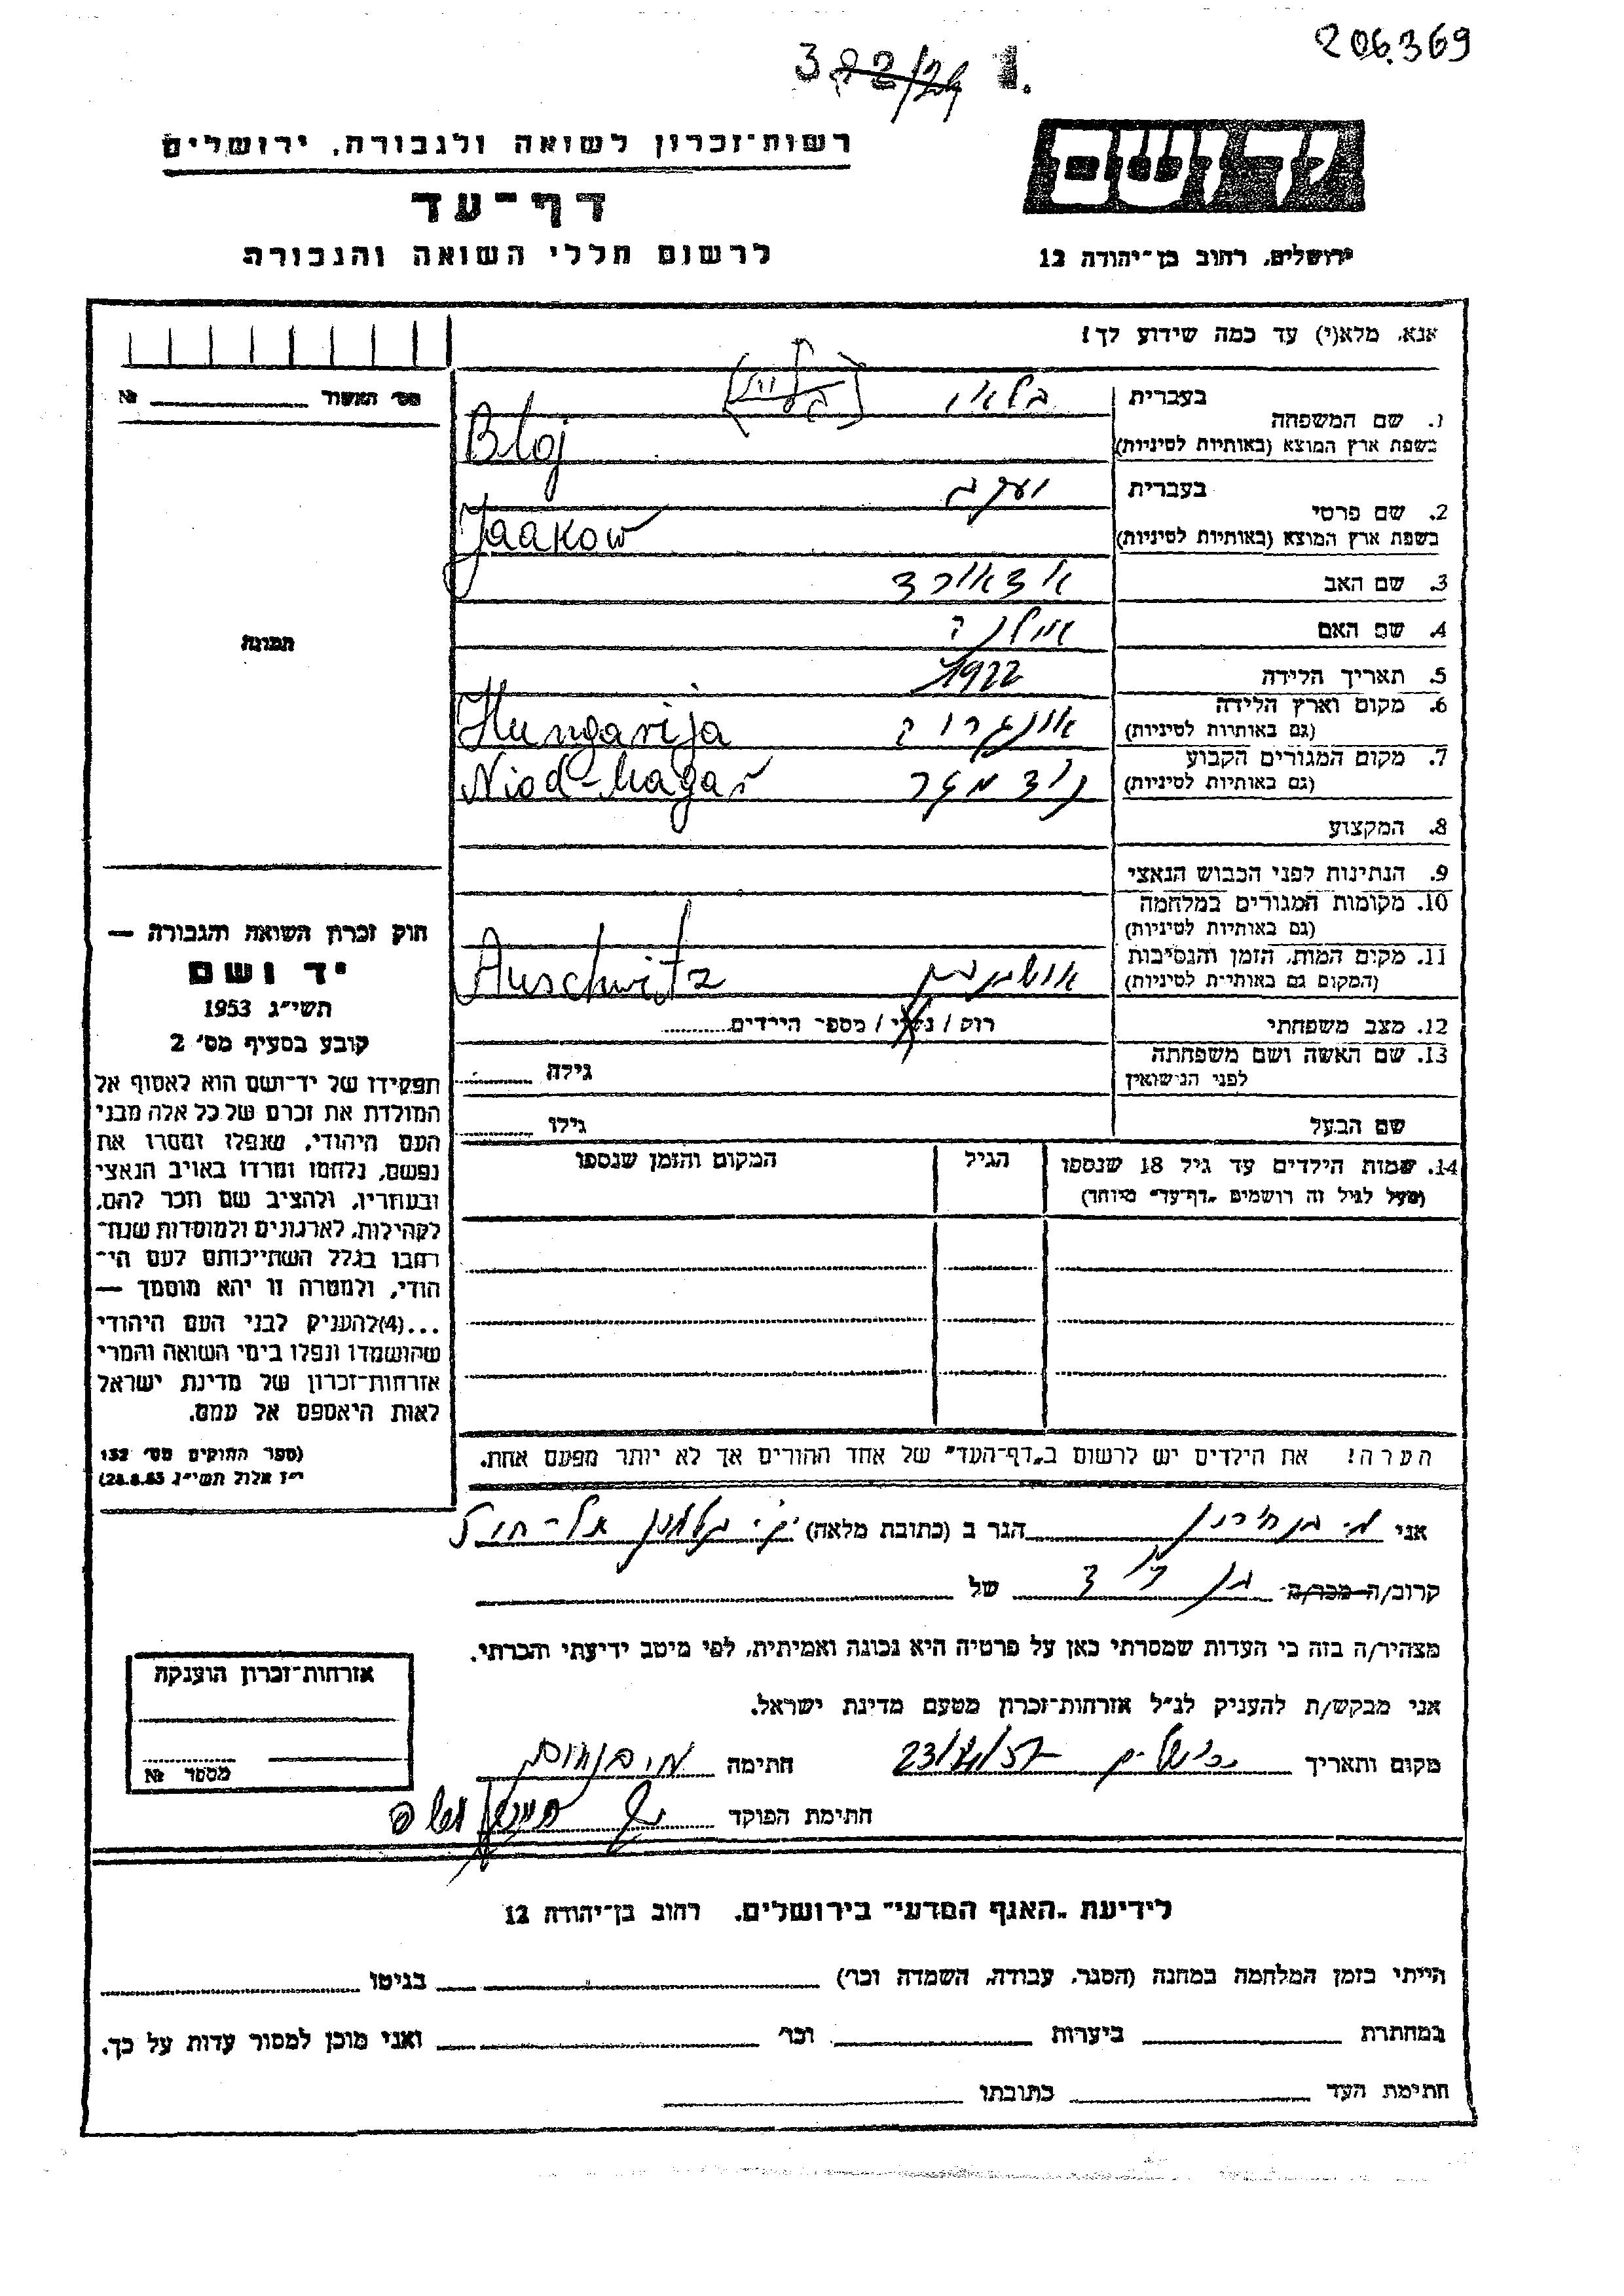 206369
רשות־זכרון לשואה ולגבורה, ירושלים
יד ושם
דף־עד
לרשום חללי השואה והגבורה
ירושלים, רחוב בן־יהודה 12
אנא, מלא(י) עד כמה שידוע לך!
מס׳ האשור № 
1. שם המשפחה
בעברית בלאי
בשפת ארץ המוצא (באותיות לטיניות) Bloj
2. שם פרטי
בעברית יעקב
בשפת ארץ המוצא (באותיות לטיניות) Jaakow
3. שם האב
4. שם האם אילנה
5. תאריך הלידה 1922
6. מקום וארץ הלידה (גם באותיות לטיניות) אונגריה Hungarija
7. מקום המגורים הקבוע (גם באותיות לטיניות) Niod-Magar
8. המקצוע
9. הנתינות לפני הכבוש הנאצי
10. מקומות המגורים במלחמה (גם באותיות לטיניות)
11. מקום המות, הזמן והנסיבות (המקום גם באותיות לטיניות) Auschwitz
12. מצב משפחתי רוק / נשוי / מספר הילדים
13. שם האשה ושם משפחתה לפני הנישואין גילה
שם הבעל גילו
14. שמות הילדים עד גיל 18 שנספו
(מעל לגיל זה רושמים „דף־עד״ מיוחד)
הגיל
המקום והזמן שנספו
הערה! את הילדים יש לרשום ב„דף־העד״ של אחד ההורים אך לא יותר מפעם אחת.
תמונה
חוק זכרון השואה והגבורה —
יד ושם
תשי״ג 1953
קובע בסעיף מס׳ 2
תפקידו של יד־ושם הוא לאסוף אל
המולדת את זכרם של כל אלה מבני
העם היהודי, שנפלו ומסרו את
נפשם, נלחמו ומרדו באויב הנאצי
ובעוזריו, ולהציב שם וזכר להם,
לקהילות, לארגונים ולמוסדות שנח־
רבו בגלל השתייכותם לעם הי־
הודי, ולמטרה זו יהא מוסמך —
...(4)להעניק לבני העם היהודי
שהושמדו ונפלו בימי השואה והמרי
אזרחות־זכרון של מדינת ישראל
לאות היאספם אל עמם.
(ספר החוקים מס׳ 132
י״ז אלול תשי״ג 28.8.53)
אני הגר ב (כתובת מלאה)
קרוב/ה מכר/ה בן דוד של
מצהיר/ה בזה כי העדות שמסרתי כאן על פרטיה היא נכונה ואמיתית, לפי מיטב ידיעתי והכרתי.
אני מבקש/ת להעניק לנ״ל אזרחות־זכרון מטעם מדינת ישראל.
מקום ותאריך ירושלים חתימה
חתימת הפוקד
אזרחות־זכרון הוענקה
מספר №
לידיעת „האגף המדעי״ בירושלים, רחוב בן־יהודה 12
הייתי בזמן המלחמה במחנה (הסגר, עבודה, השמדה וכו׳) בגיטו
במחתרת ביערות וכו׳ ואני מוכן למסור עדות על כך.
חתימת העד כתובתו